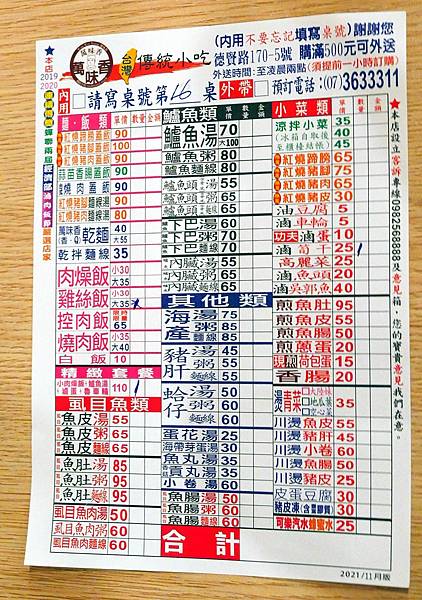 (內用不要忘記填寫桌號)謝謝您
萬味香
台灣傳統小吃
德賢路170-5號 購滿500元可外送
外送時間:至凌晨兩點(須提前一小時訂購)
內用 請寫桌號第16桌 外帶 預訂電話:(07)3633311
★本店2019 2020
★本店設立客訴專線0982568888及意見箱,您的寶貴意見我們在意。
麵、飯類 單價 數量 金額
紅燒蹄膀蓋飯 90
紅燒豬腳蓋飯 90
蒜苗香腸蓋飯 90
燒肉蓋飯 90
紅燒豬腳麵線湯 80
紅燒豬腸麵線湯 80
萬味香(香Q)乾麵 小40 大55
乾拌麵線 35
肉燥飯 小30 大35
雞絲飯 小30 大35
控肉飯 限時限量 65
燒肉飯 小35 大40
白飯 10
精緻套餐
小肉燥飯、鱸魚湯、滷蛋、魯車輪 110
虱目魚類
魚皮湯 55
魚皮粥 65
魚皮麵線 65
魚肚湯 85
魚肚粥 95
魚肚麵線 95
虱目魚肉湯 50
虱目魚肉粥 60
虱目魚肉麵線 60
鱸魚類 單價 數量 金額
鱸魚湯 70 大100
鱸魚粥 80
鱸魚麵線 80
鱸魚頭湯 55
鱸魚頭粥 65
鱸魚頭麵線 65
下巴湯 60
下巴粥 70
下巴麵線 70
內臟湯 55
內臟粥 65
內臟麵線 65
其他類
海產湯 75
海產粥 85
海產麵線 85
豬肝湯 45
豬肝粥 55
豬肝麵線 55
蛤仔湯 50
蛤仔粥 60
蛤仔麵線 60
蛋花湯 30
海帶芽蛋湯 30
魚丸湯 35
香菇貢丸湯 35
小卷湯 60
魚腸湯 50
魚腸粥 60
魚腸麵線 60
合計
小菜類 單價 數量 金額
涼拌小菜 35
(冰箱自取後至櫃檯結帳) 40
45
紅燒蹄膀 65
紅燒豬腳 75
紅燒豬腸 65
紅燒豬皮 30
油豆腐 5
滷車輪 5
功夫滷蛋 10
滷筍干 25
高麗菜 25
滷魚頭 20
滷吳郭魚 40
煎魚肚 95
煎魚皮 55
煎魚腸 50
煎蔥蛋 20
現煎荷包蛋 15
香腸 20
燙青菜 大陸妹 地瓜葉 空心菜 35
川燙魚皮 55
川燙豬肝 45
川燙小卷 60
川燙魚腸 50
川燙豬皮 25
皮蛋豆腐 30
豬皮凍(含膠原質) 30
可樂汽水蜂蜜水 25
2021/11月版